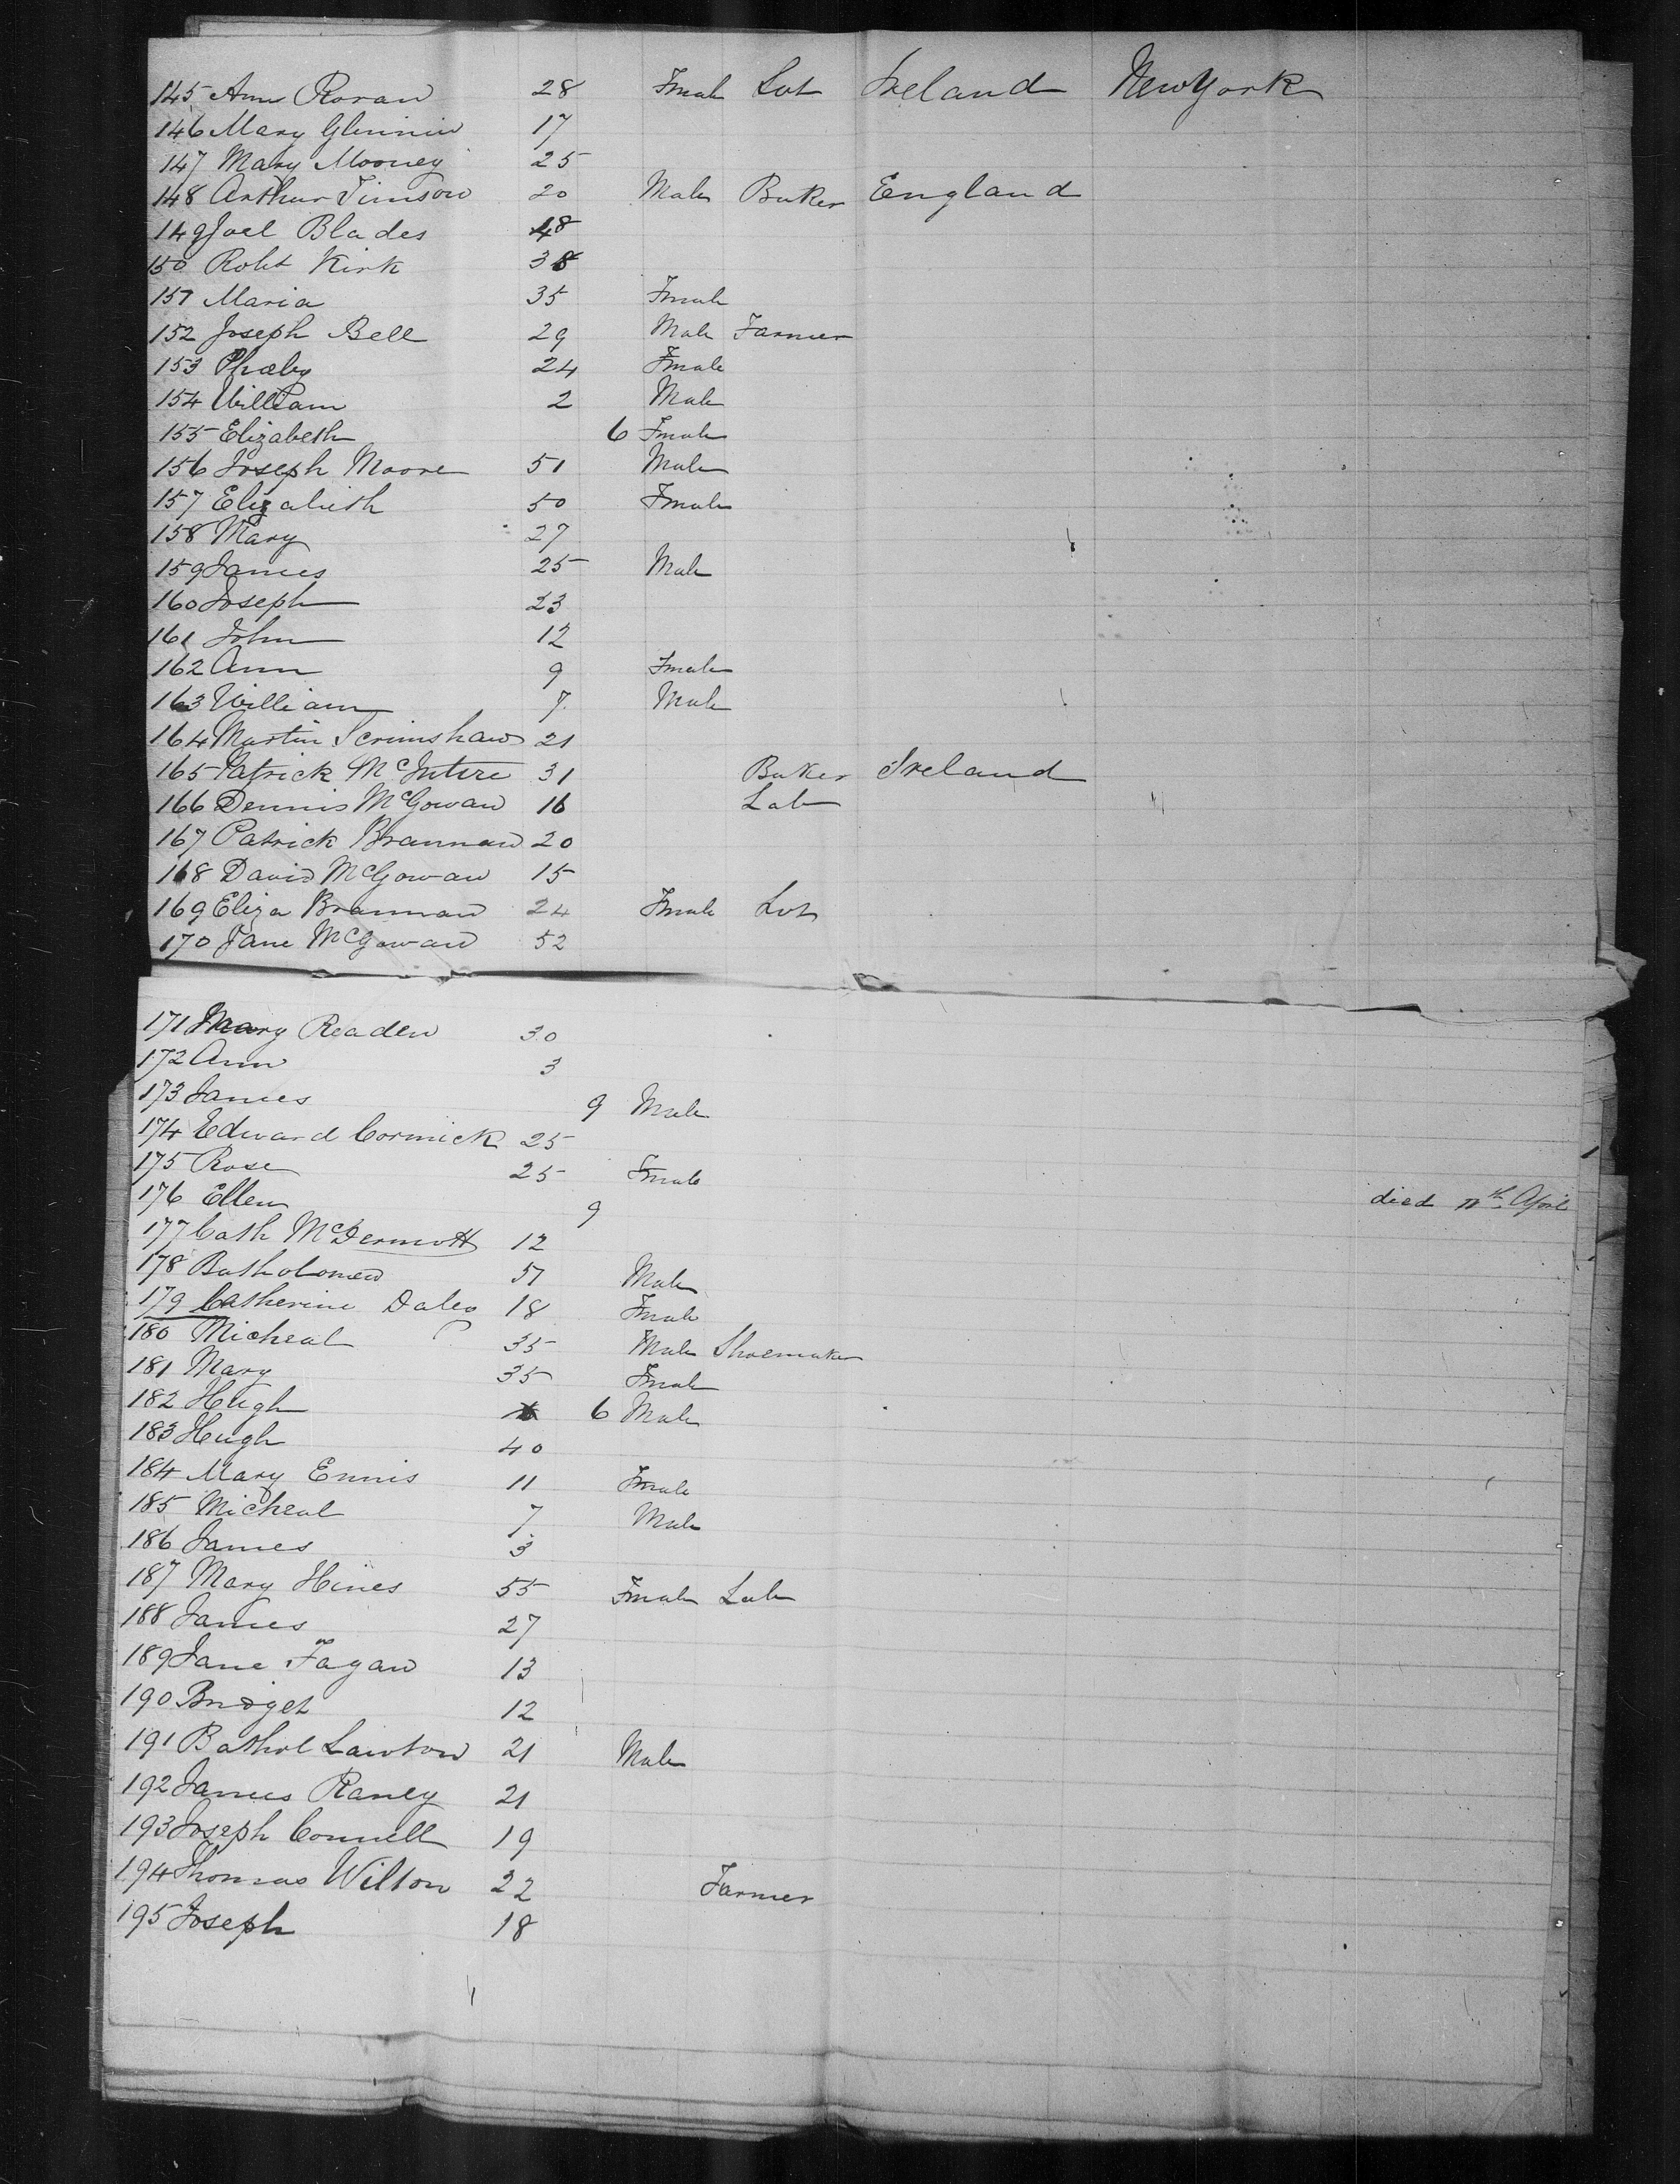 145 Ann Rovan 28 Fmale Lab Ireland New York
146 Mary Glennin 17
147 Mary Mooney 25
148 Arthur Timson 20 Male Baker England
149 Joel Blades 48
150 Robt Kirk 38
151 Maria 35 Fmale
152 Joseph Bell 29 Male Farmer
153 Phœby 24 Fmale
154 William 2 Male
155 Elizabeth 6 Fmale
156 Joseph Moore 51 Male
157 Elizabeth 50 Fmale
158 Mary 27
159 James 25 Male
160 Joseph 23
161 John 12
162 Ann 9 Fmale
163 William 7 Male
164 Martin Scrimshaw 21
165 Patrick McIntire 31 Baker Ireland
166 Dennis McGowan 16 Lab
167 Patrick Brannan 20
168 David McGowan 15
169 Eliza Brannan 24 Fmale
170 Jane McGowan 52
171 Mary Readen 30
172 Ann 3
173 James 9 Male
174 Edward Cormick 25
175 Rose 25 Fmale
176 Ellen 9 died 11th April
177 Cath McDermott 12
178 Batholomew 51 Male
179 Catherine Daley 18 Fmale
180 Micheal 35 Male Shoemaker
181 Mary 35 Fmale
182 Hugh 6 Male
183 Hugh 40
184 Mary Ennis 11 Fmale
185 Micheal 7 Male
186 James 3
187 Mary Hines 55 Fmale Lab
188 James 27
189 Jane Fagan 13
190 Bridget 12
191 Bathol Lawton 21 Male
192 James Raney 21
193 Joseph Connell 19
194 Thomas Wilton 22 Farmer
195 Joseph 18